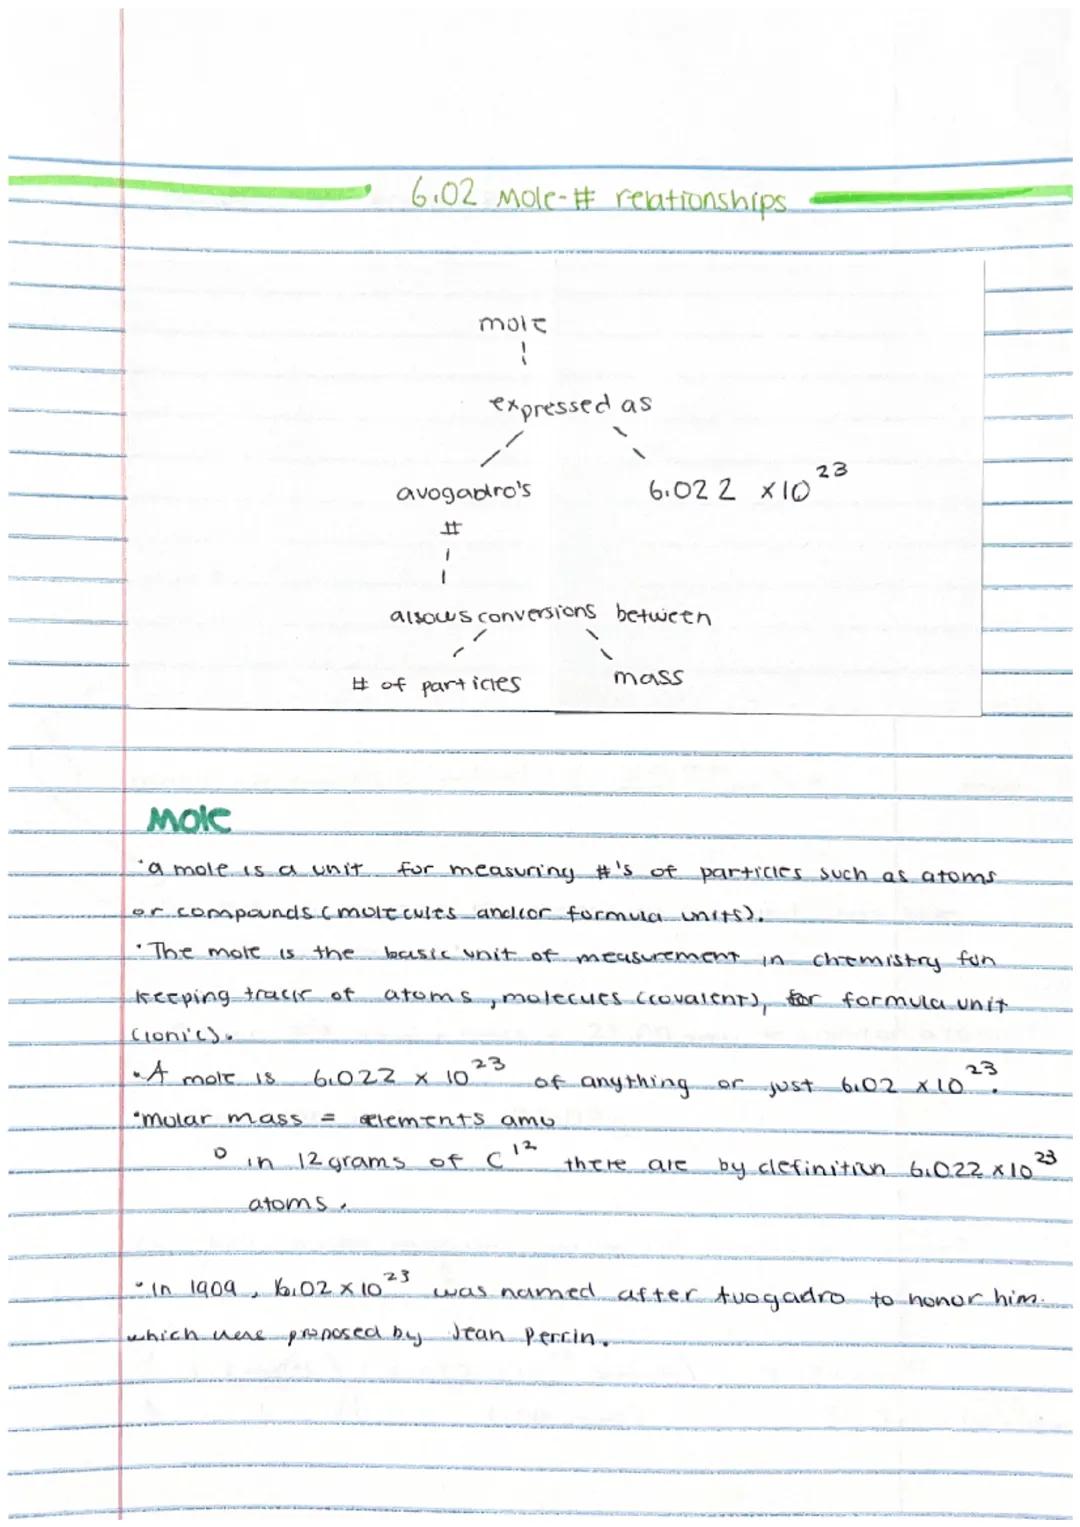 6.02 Mole-# relationships
mole
expressed as
avogadro's
6.022 x10²³
#
allows conversions between
# of particles
mass
Mole
•a mole is a unit for measuring #'s of particles such as atoms
or compounds (molecules and(or formula units).
•The mole is the basic unit of measurement in chemistry for
keeping track of atoms, molecues (covalent), for formula unit
(ionic).
•A mole is 6.022 x 10²³ of anything or just 6.02 x10²³.
•molar mass = elements amu
o in 12grams of C¹² there are by definition 6.022 x10²³
atoms.
•In 1909, 6.02 x10²³ was named after Avogadro to honor him.
which were proposed by Jean Perrin.